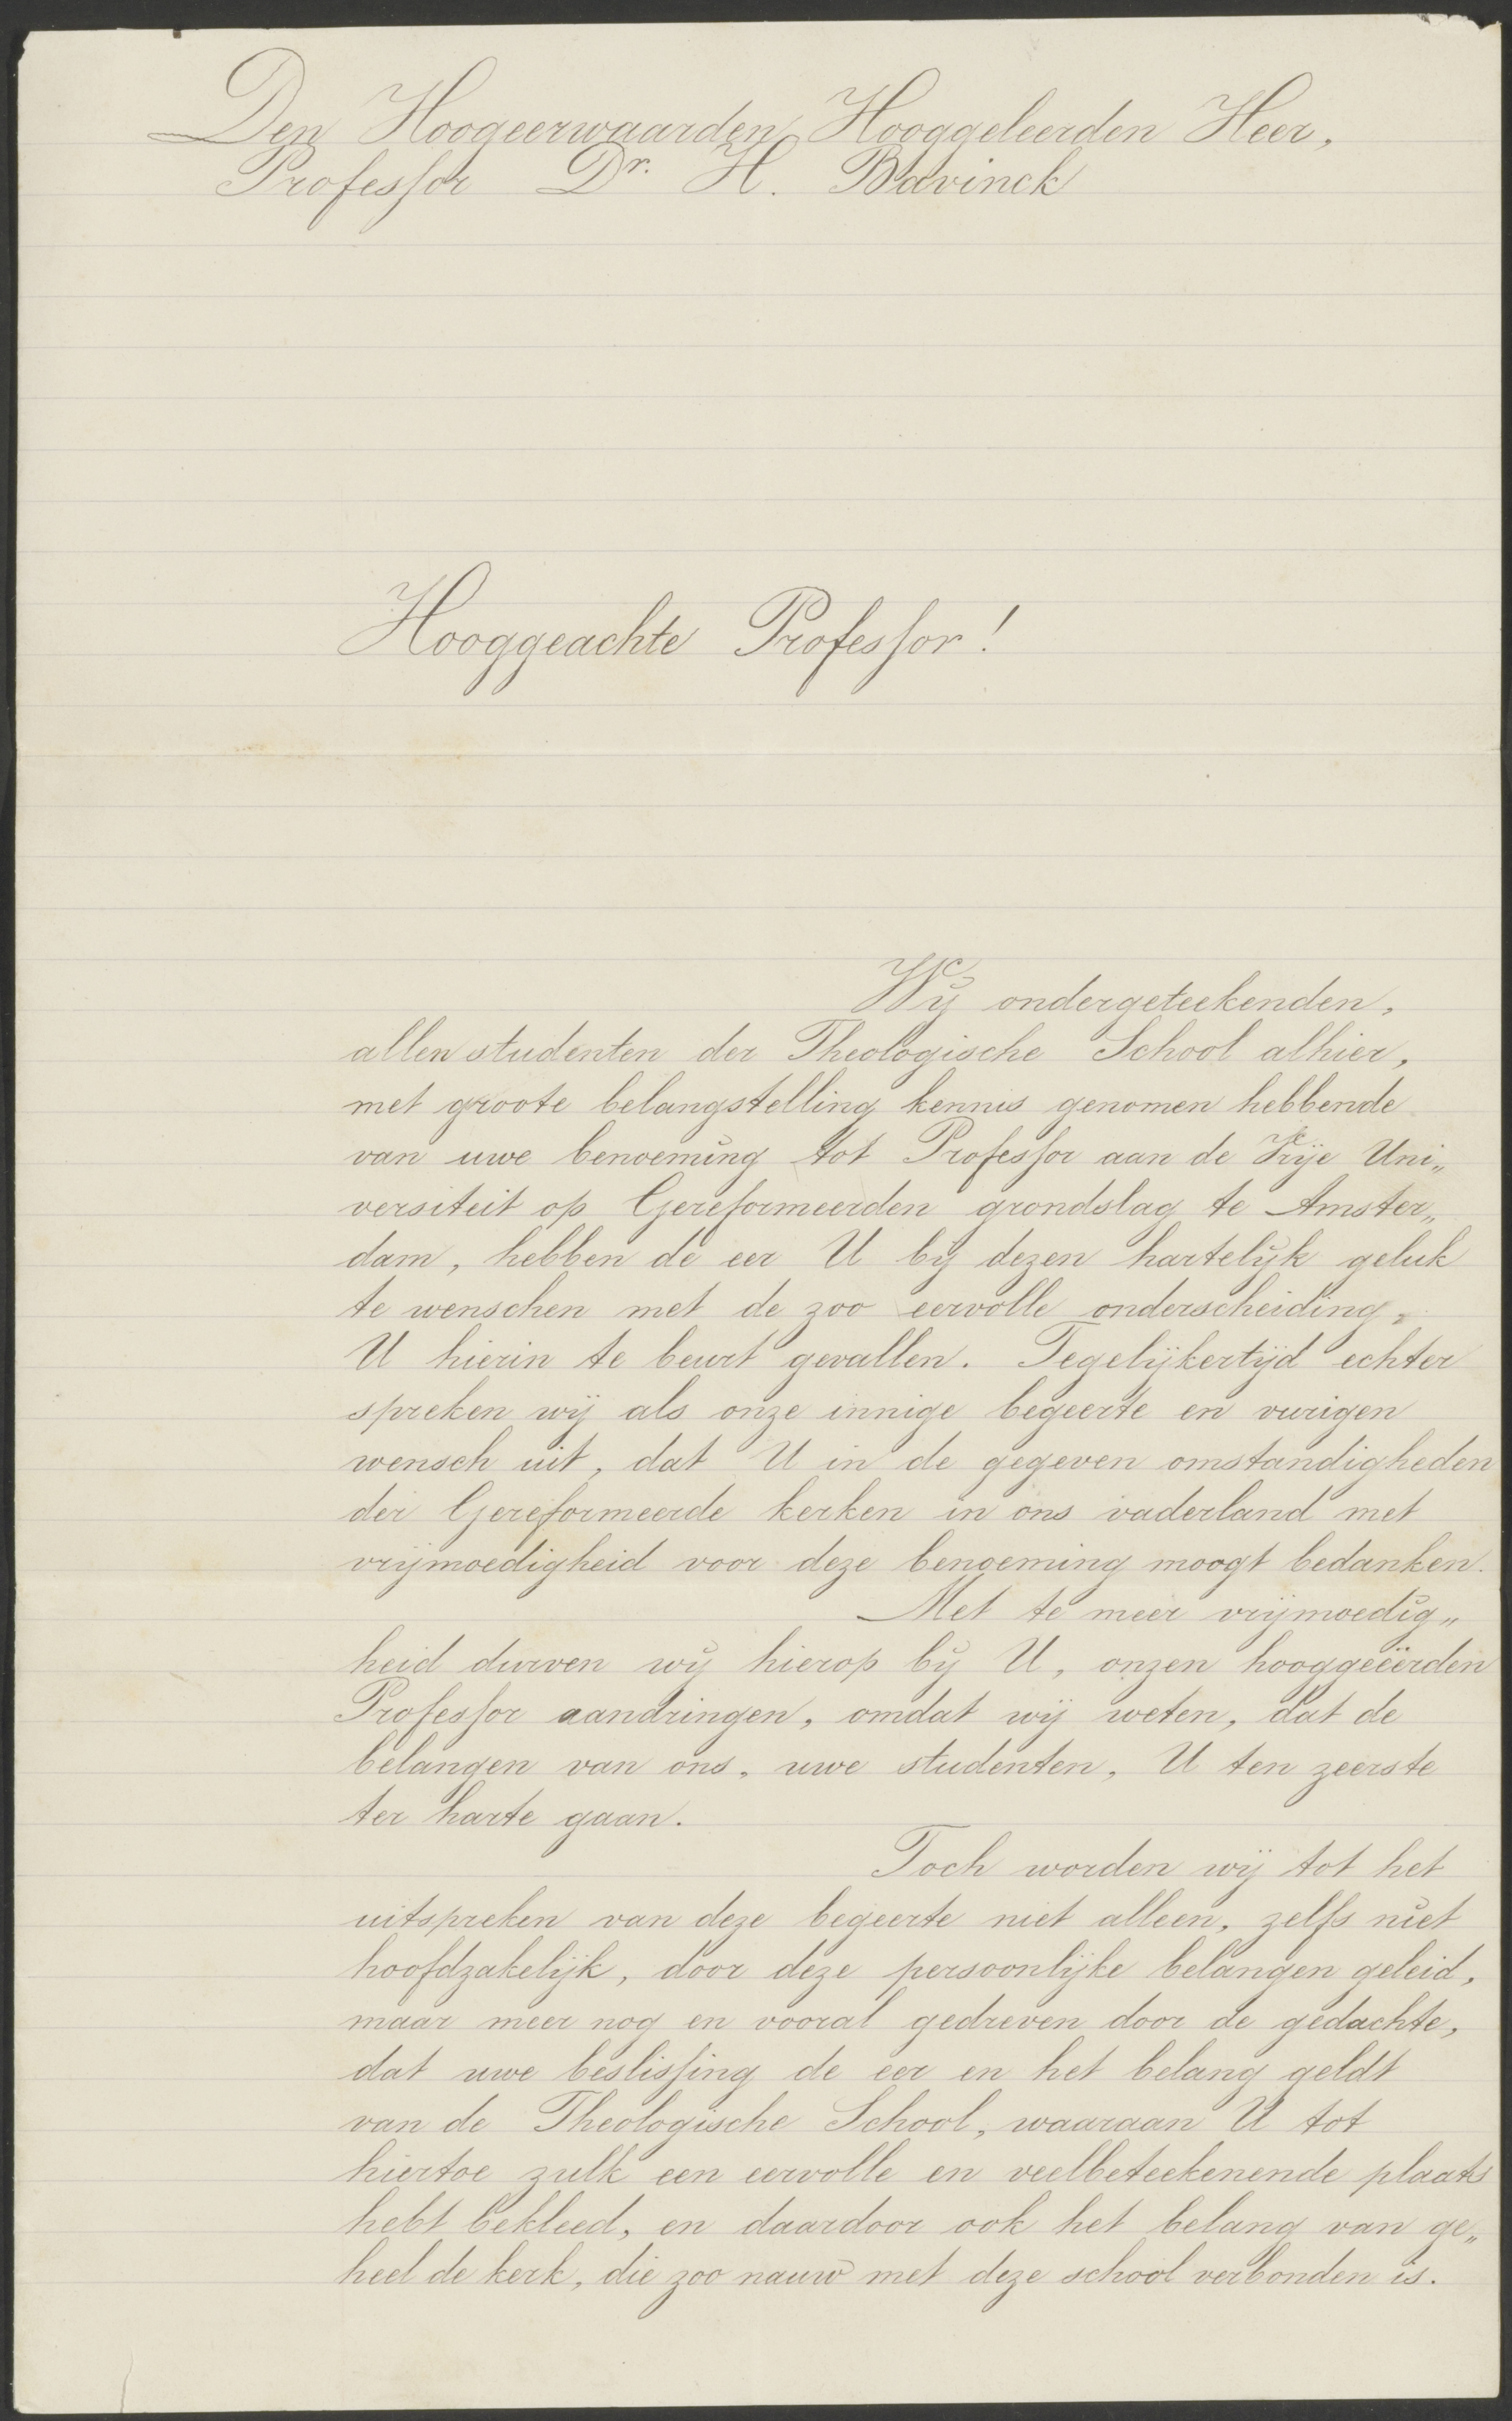 Den Hoogeerwaarden, Hooggeleerden Heer,
Professor Dr. H. Bavinck
Hooggeachte Professor!
Wij ondergeteekenden,
allen studenten der Theologische School alhier,
met groote belangstelling kennis genomen hebbende
van uwe benoeming tot Professor aan de Vrije Uni„
versiteit op Gereformeerden grondslag te Amster„
dam, hebben de eer U bij dezen hartelijk geluk
te wenschen met de zoo eervolle onderscheiding,
U hierin te beurt gevallen. Tegelijkertijd echter
spreken wij als onze innige begeerte en vurigen
wensch uit, dat U in de gegeven omstandigheden
der Gereformeerde kerken in ons vaderland met
vrijmoedigheid voor deze benoeming moogt bedanken.
Met te meer vrijmoedig„
heid durven wij hierop bij U, onzen hooggeëerden
Professor aandringen, omdat wij weten, dat de
belangen van ons, uwe studenten, U ten zeerste
ter harte gaan.
Toch worden wij tot het
uitspreken van deze begeerte niet alleen, zelfs niet
hoofdzakelijk, door deze persoonlijke belangen geleid,
maar meer nog en vooral gedreven door de gedachte,
dat uwe beslissing de eer en het belang geldt
van de Theologische School, waaraan U tot
hiertoe zulk een eervolle en veelbeteekenende plaats
hebt bekleed, en daardoor ook het belang van ge„
heel de kerk, die zoo nauw met deze school verbonden is.